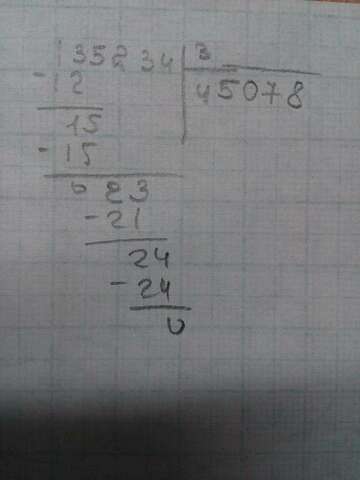 135234 3
- 12 45078
15
- 15
023
- 21
24
- 24
0